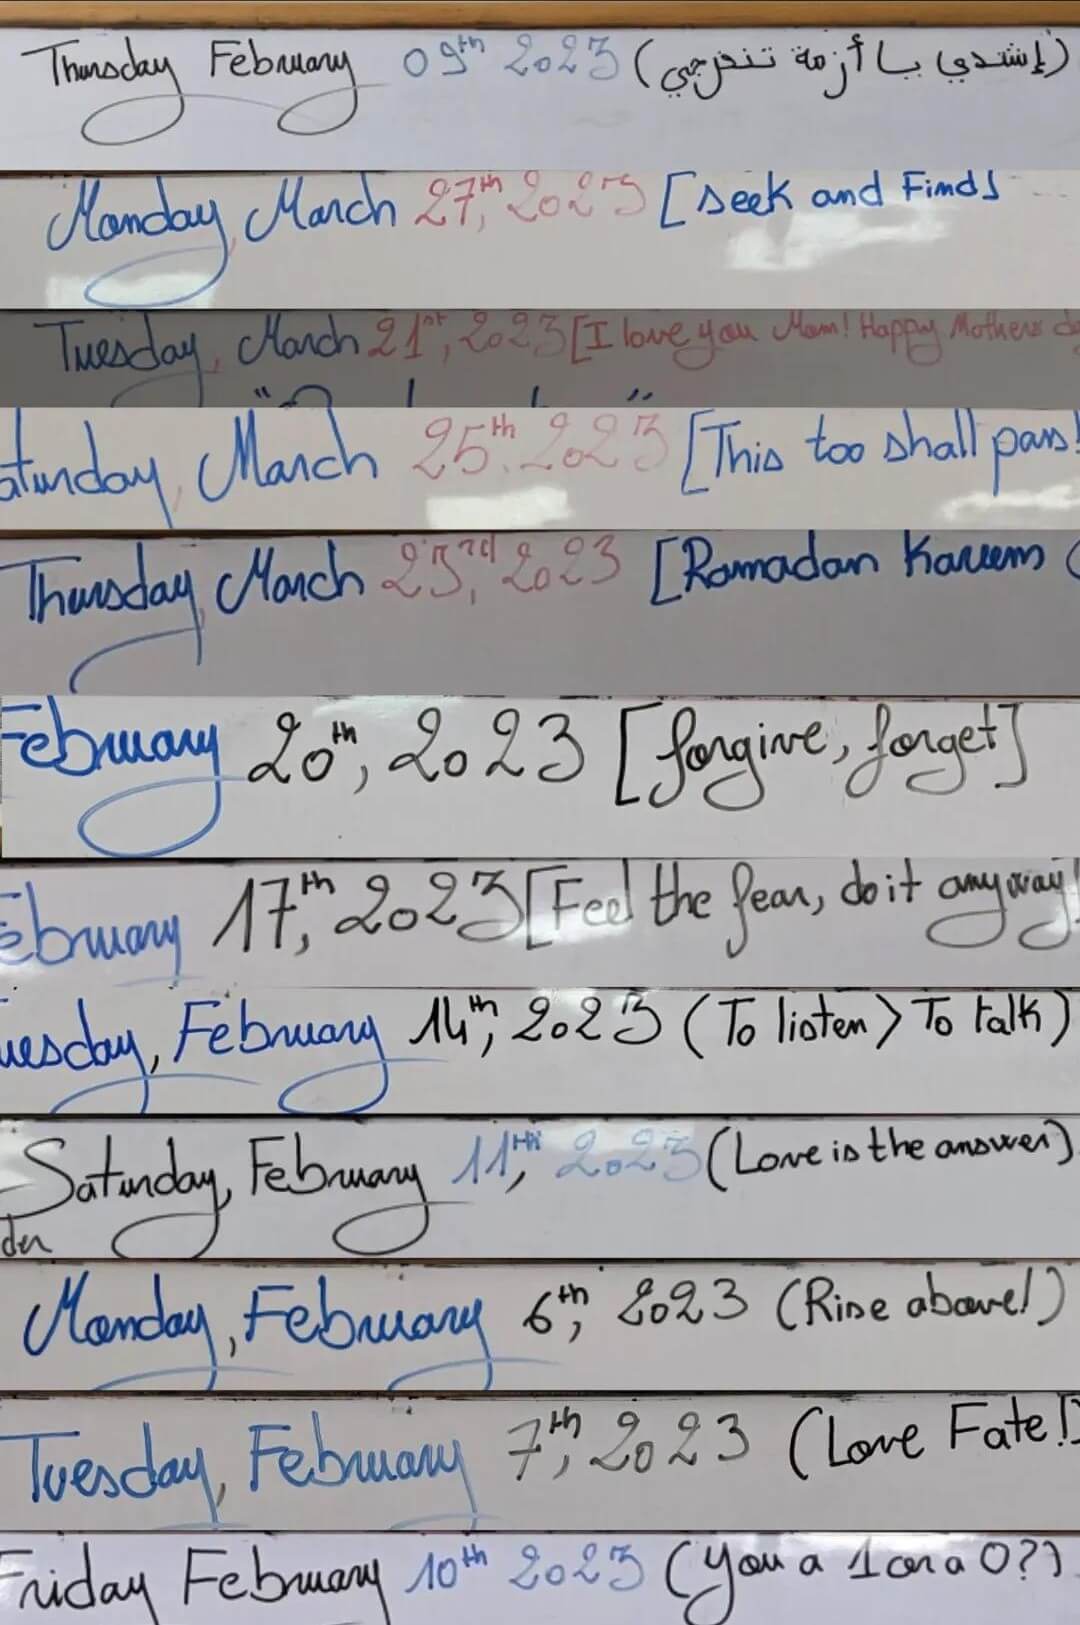 Thursday February 09th 2023 (إشتدي يا أزمة تنفرجي)
Monday, March 27th, 2023 [seek and Find]
Tuesday, March 21st, 2023 [I love you Mom! Happy Mothers da
aturday, March 25th, 2023 [This too shall pass!
Thursday, March 23rd, 2023 [Ramadan Kareem (
February 20th, 2023 [forgive, forget]
ebruary 17th, 2023 [Feel the fear, do it anyway!
uesday, February 14th, 2023 (To listen > To talk)
Saturday, February 11th, 2023 (Love is the answer)
der
Monday, February 6th, 2023 (Rise above!)
Tuesday, February 7th, 2023 (Love Fate!)
Friday February 10th 2023 (you a 1 or a 0?)